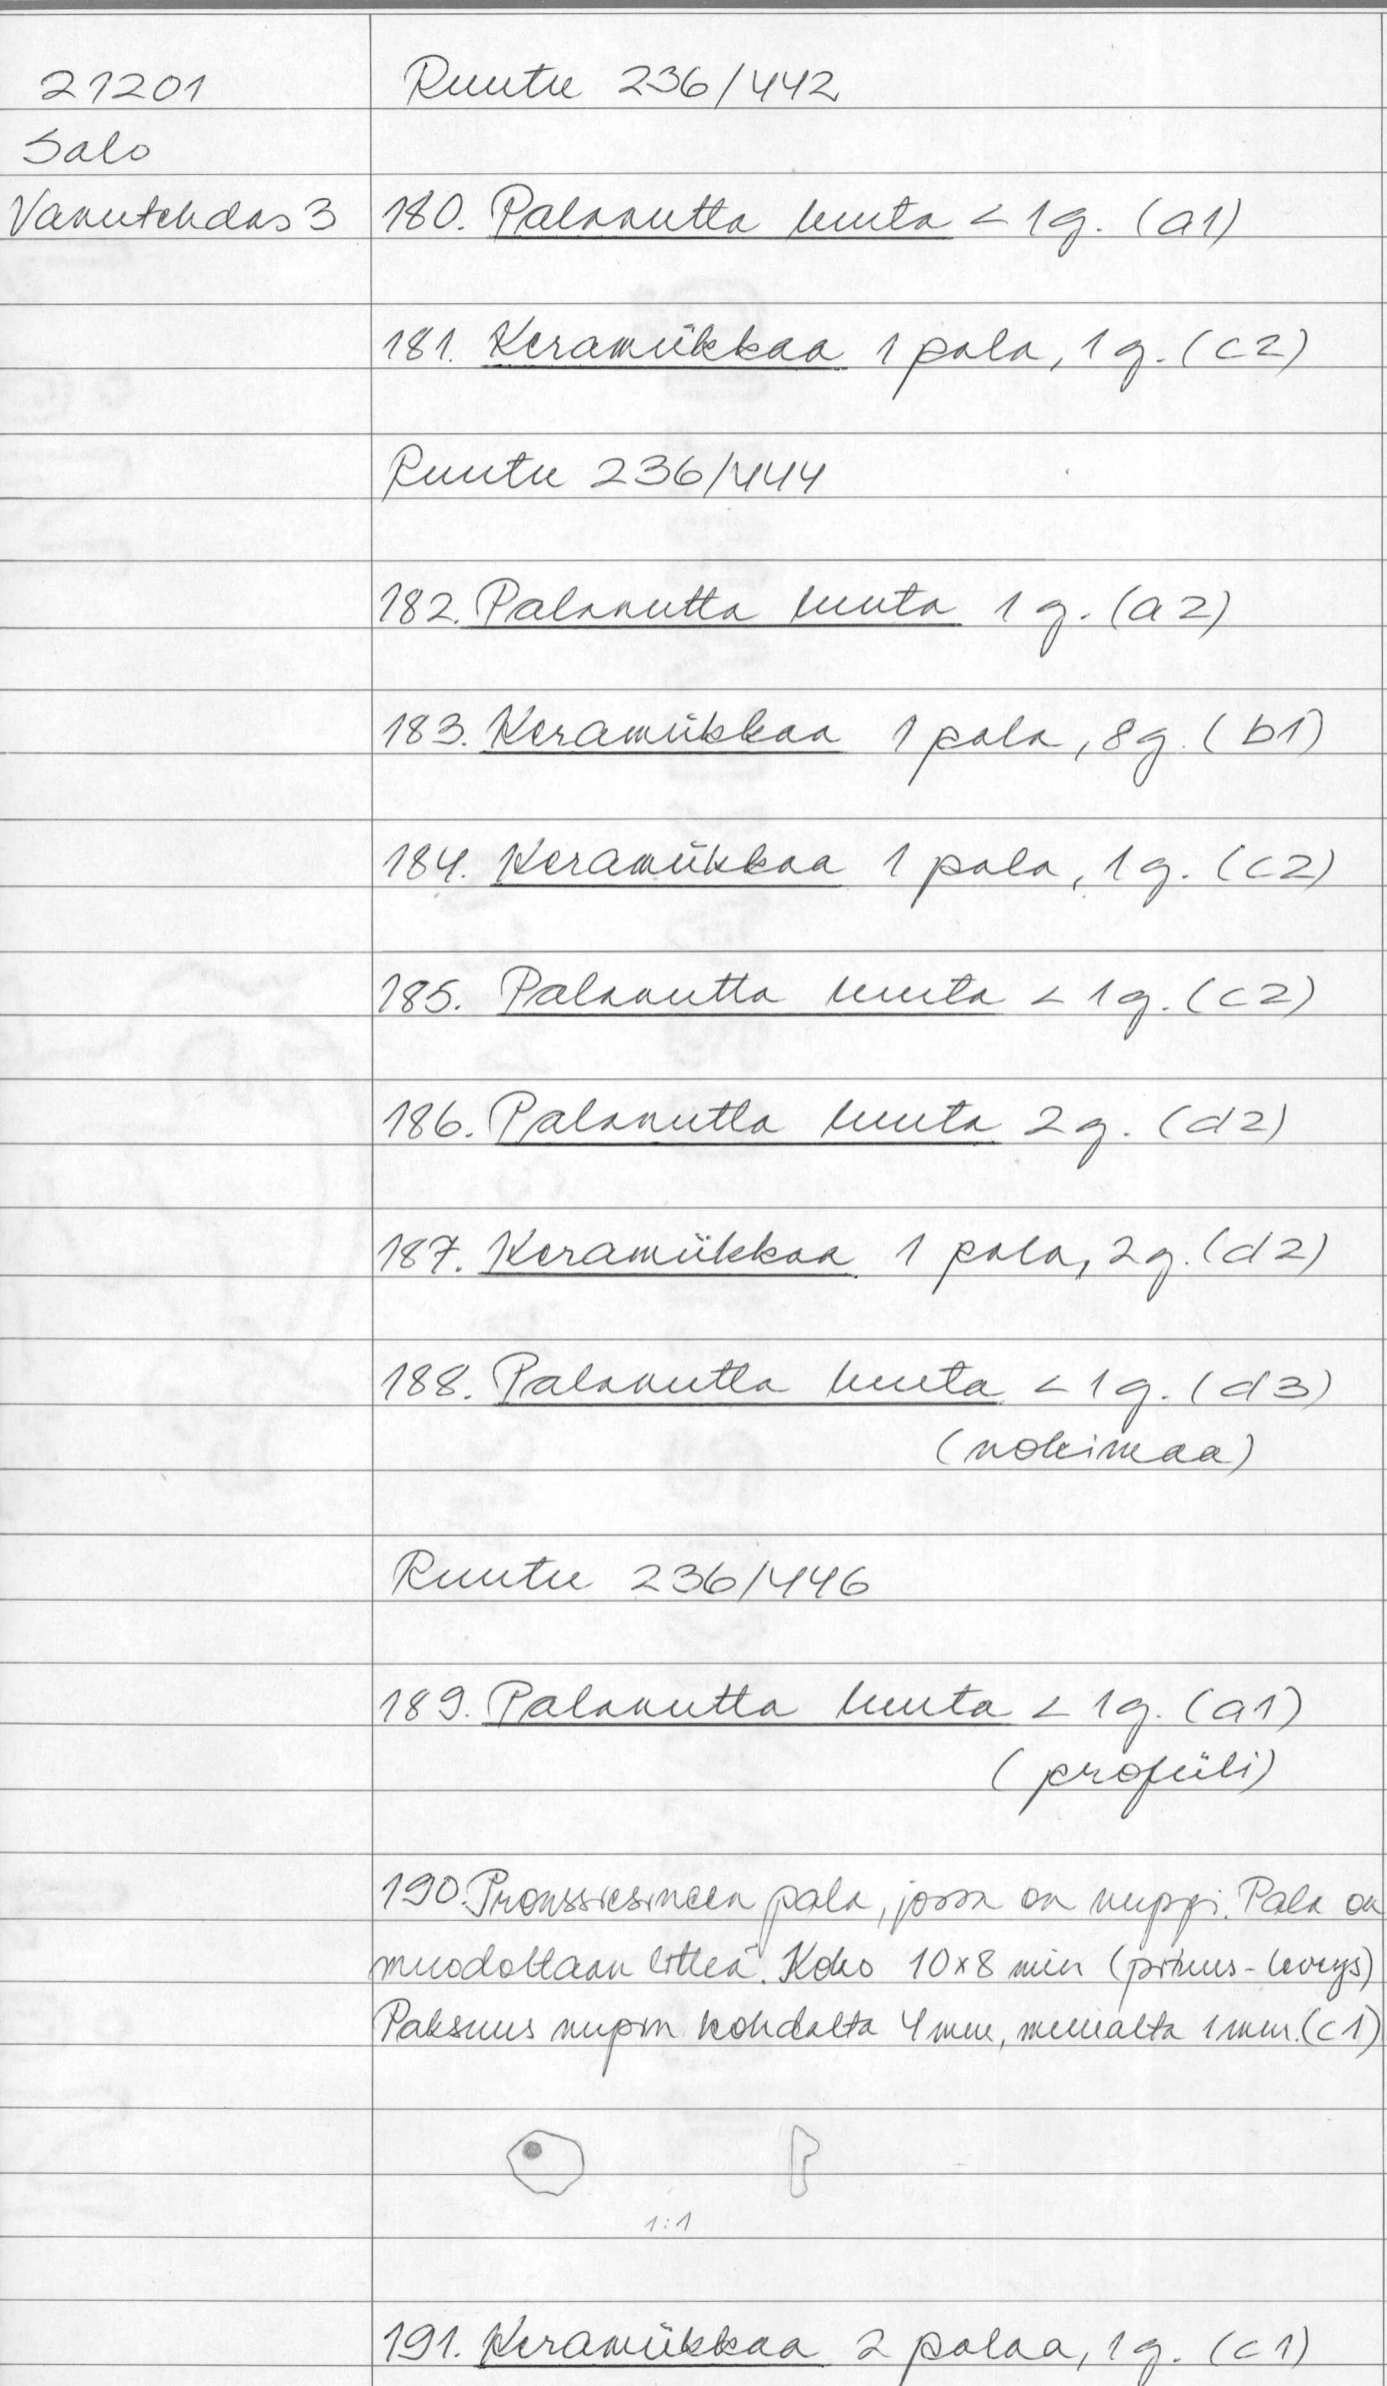 21201
Salo
Vanutehdas 3
Ruutu 236/442
180. Palanutta luuta < 1g. (a1)
181. Keramiikkaa 1 pala, 1g. (c2)
Ruutu 236/444
182. Palanutta luuta 1g. (a2)
183. Keramiikkaa 1 pala, 8g. (b1)
184. Keramiikkaa 1 pala, 1g. (c2)
185. Palanutta luuta < 1g. (c2)
186. Palanutta luuta 2g. (d2)
187. Keramiikkaa 1 pala, 2g. (d2)
188. Palanutta luuta < 1g. (d3)
(nokimaa)
Ruutu 236/446
189. Palanutta luuta < 1g. (a1)
(profiili)
190. Pronssiesineen pala, jossa on nuppi. Pala on
muodoltaan litteä. Koko 10x8 mm (pituus-leveys)
Paksuus nupin kohdalta 4mm, muualta 1mm. (c1)
1:1
191. Keramiikkaa 2 palaa, 1g. (c1)